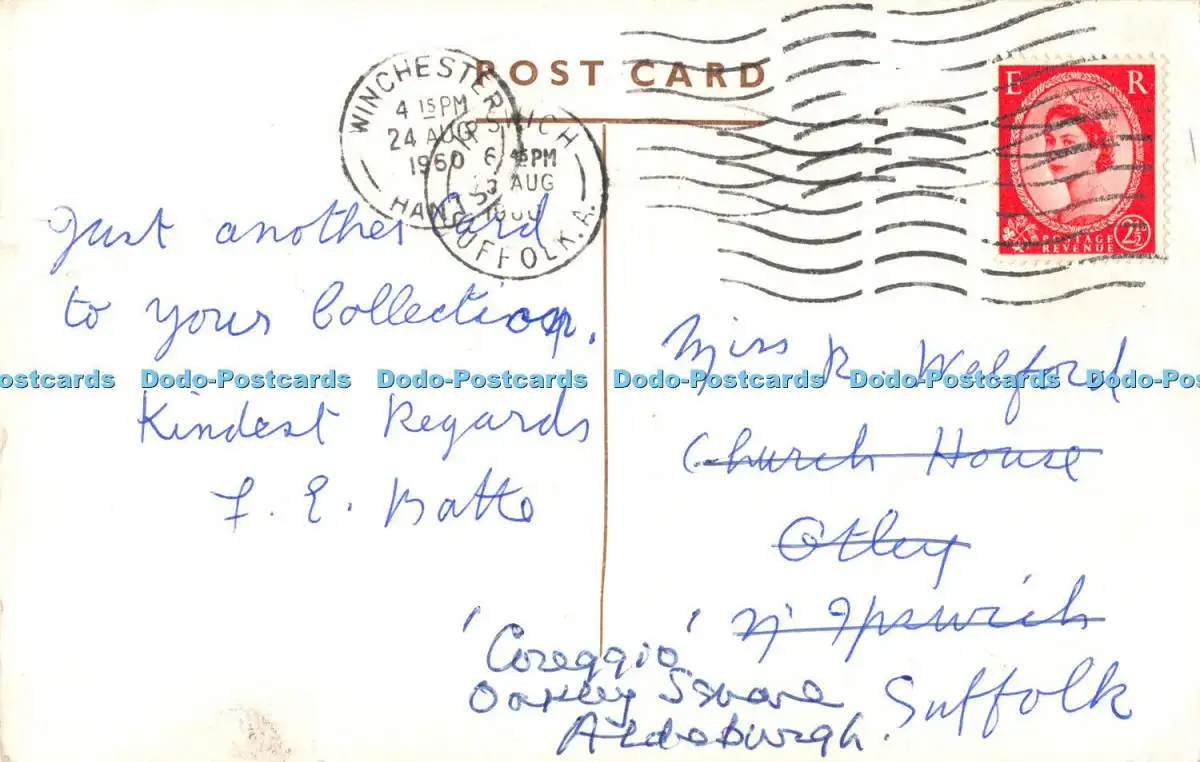 POST CARD
WINCHESTER
4 15 PM
24 AUG
1960
HAN
IPSWICH
6 45 PM
AUG
SUFFOLK. A.
E R
POSTAGE
REVENUE
2½
Just another Card
to your Collection.
Kindest Regards
F. E. Batts
ostcards Dodo-Postcards Dodo-Postcards Dodo-Postcards Dodo-Postcards Dodo-
Miss R. Walford
Church House
Otley
Nr Ipswich
Suffolk
'Coreggio'
Oakley Square
Aldeburgh.